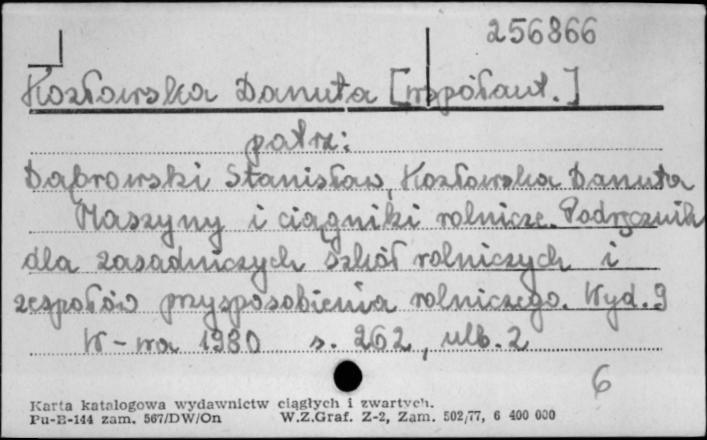 256866
Kozłowska Danuta [współaut.]
patrz:
Dąbrowski Stanisław, Kozłowska Danuta
Maszyny i ciągniki rolnicze. Podręcznik
dla zasadniczych szkół rolniczych i
zespołów przysposobienia rolniczego. Wyd. 9
W-wa 1980 s. 262, ulb. 2
6
Karta katalogowa wydawnictw ciągłych i zwartych.
Pu-B-144 zam. 567/DW/On W.Z.Graf. Z-2, Zam. 502/77, 6 400 000